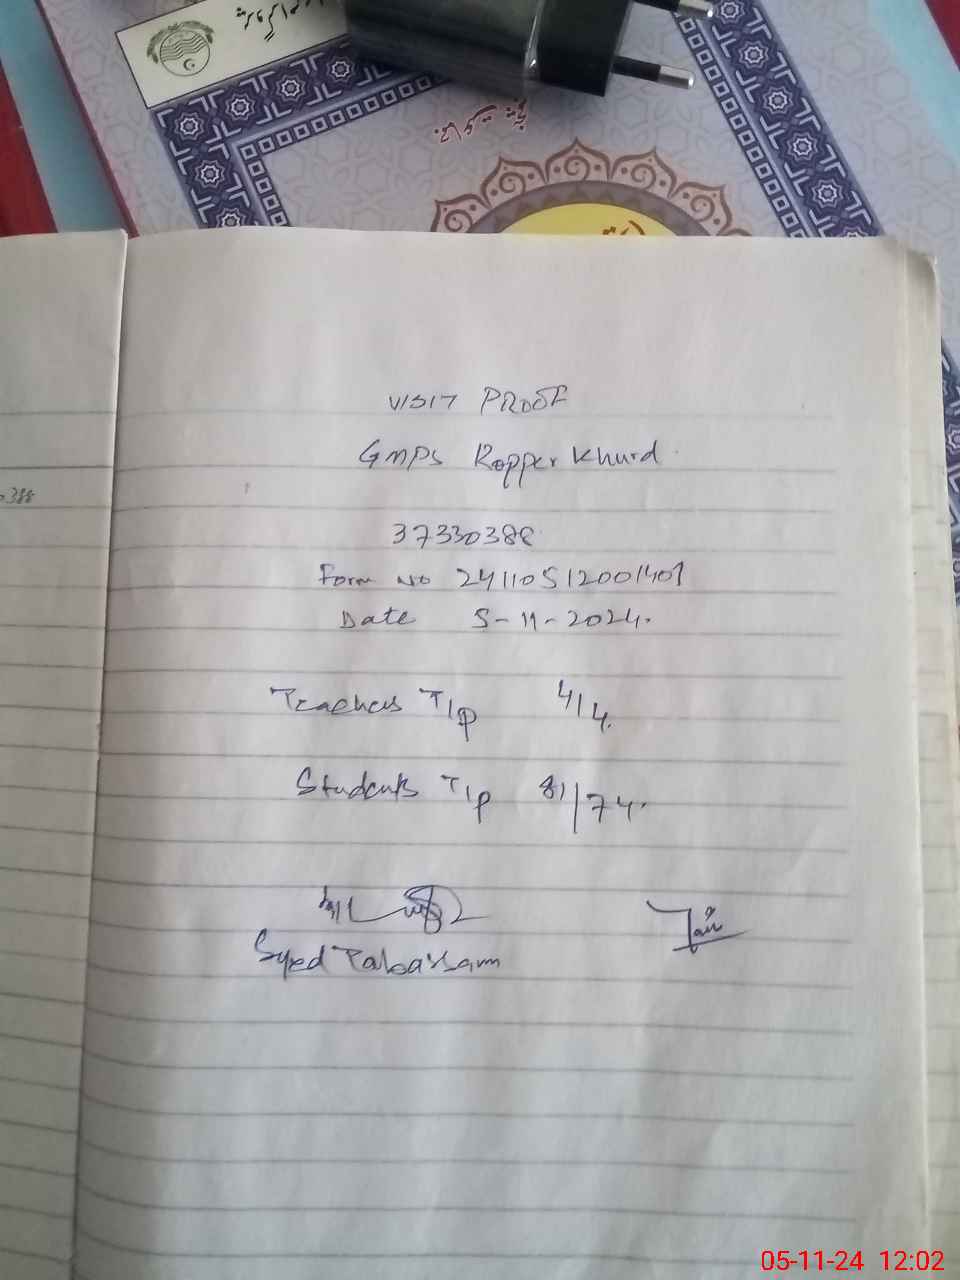 VISIT PROOF
GMPS Ropper Khurd
37330388
Form No 24110512001401
Date 5-11-2024.
Teachers T/P 4/4
Students T/P 81/74.
Syed Tabassam
05-11-24 12:02